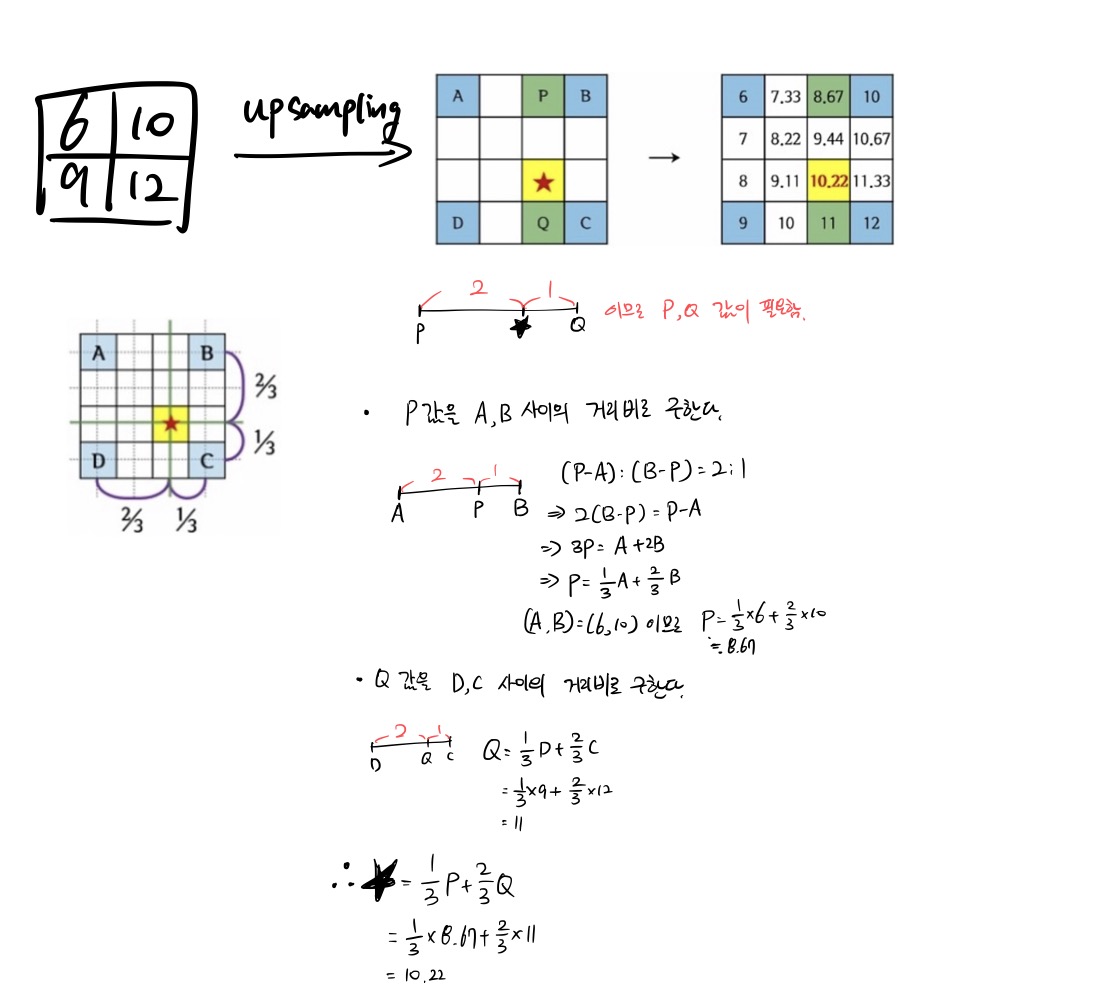 6 10
9 12
upsampling
A P B
★
D Q C
→
6 7.33 8.67 10
7 8.22 9.44 10.67
8 9.11 10.22 11.33
9 10 11 12
2 1
P ★ Q
이므로 P,Q 값이 필요함.
A B
★
D C
2/3
1/3
2/3 1/3
• P값을 A,B 사이의 거리비로 구한다.
2 1
A P B
(P-A):(B-P)=2:1
⇒ 2(B-P)=P-A
⇒ 3P= A+2B
⇒ P= 1/3 A + 2/3 B
(A,B)=(6,10) 이므로 P= 1/3 ×6 + 2/3 ×10
≒ 8.67
• Q 값을 D,C 사이의 거리비로 구한다.
2 1
D Q C
Q= 1/3 D + 2/3 C
= 1/3 ×9 + 2/3 ×12
= 11
∴ ★ = 1/3 P + 2/3 Q
= 1/3 × 8.67 + 2/3 × 11
= 10.22